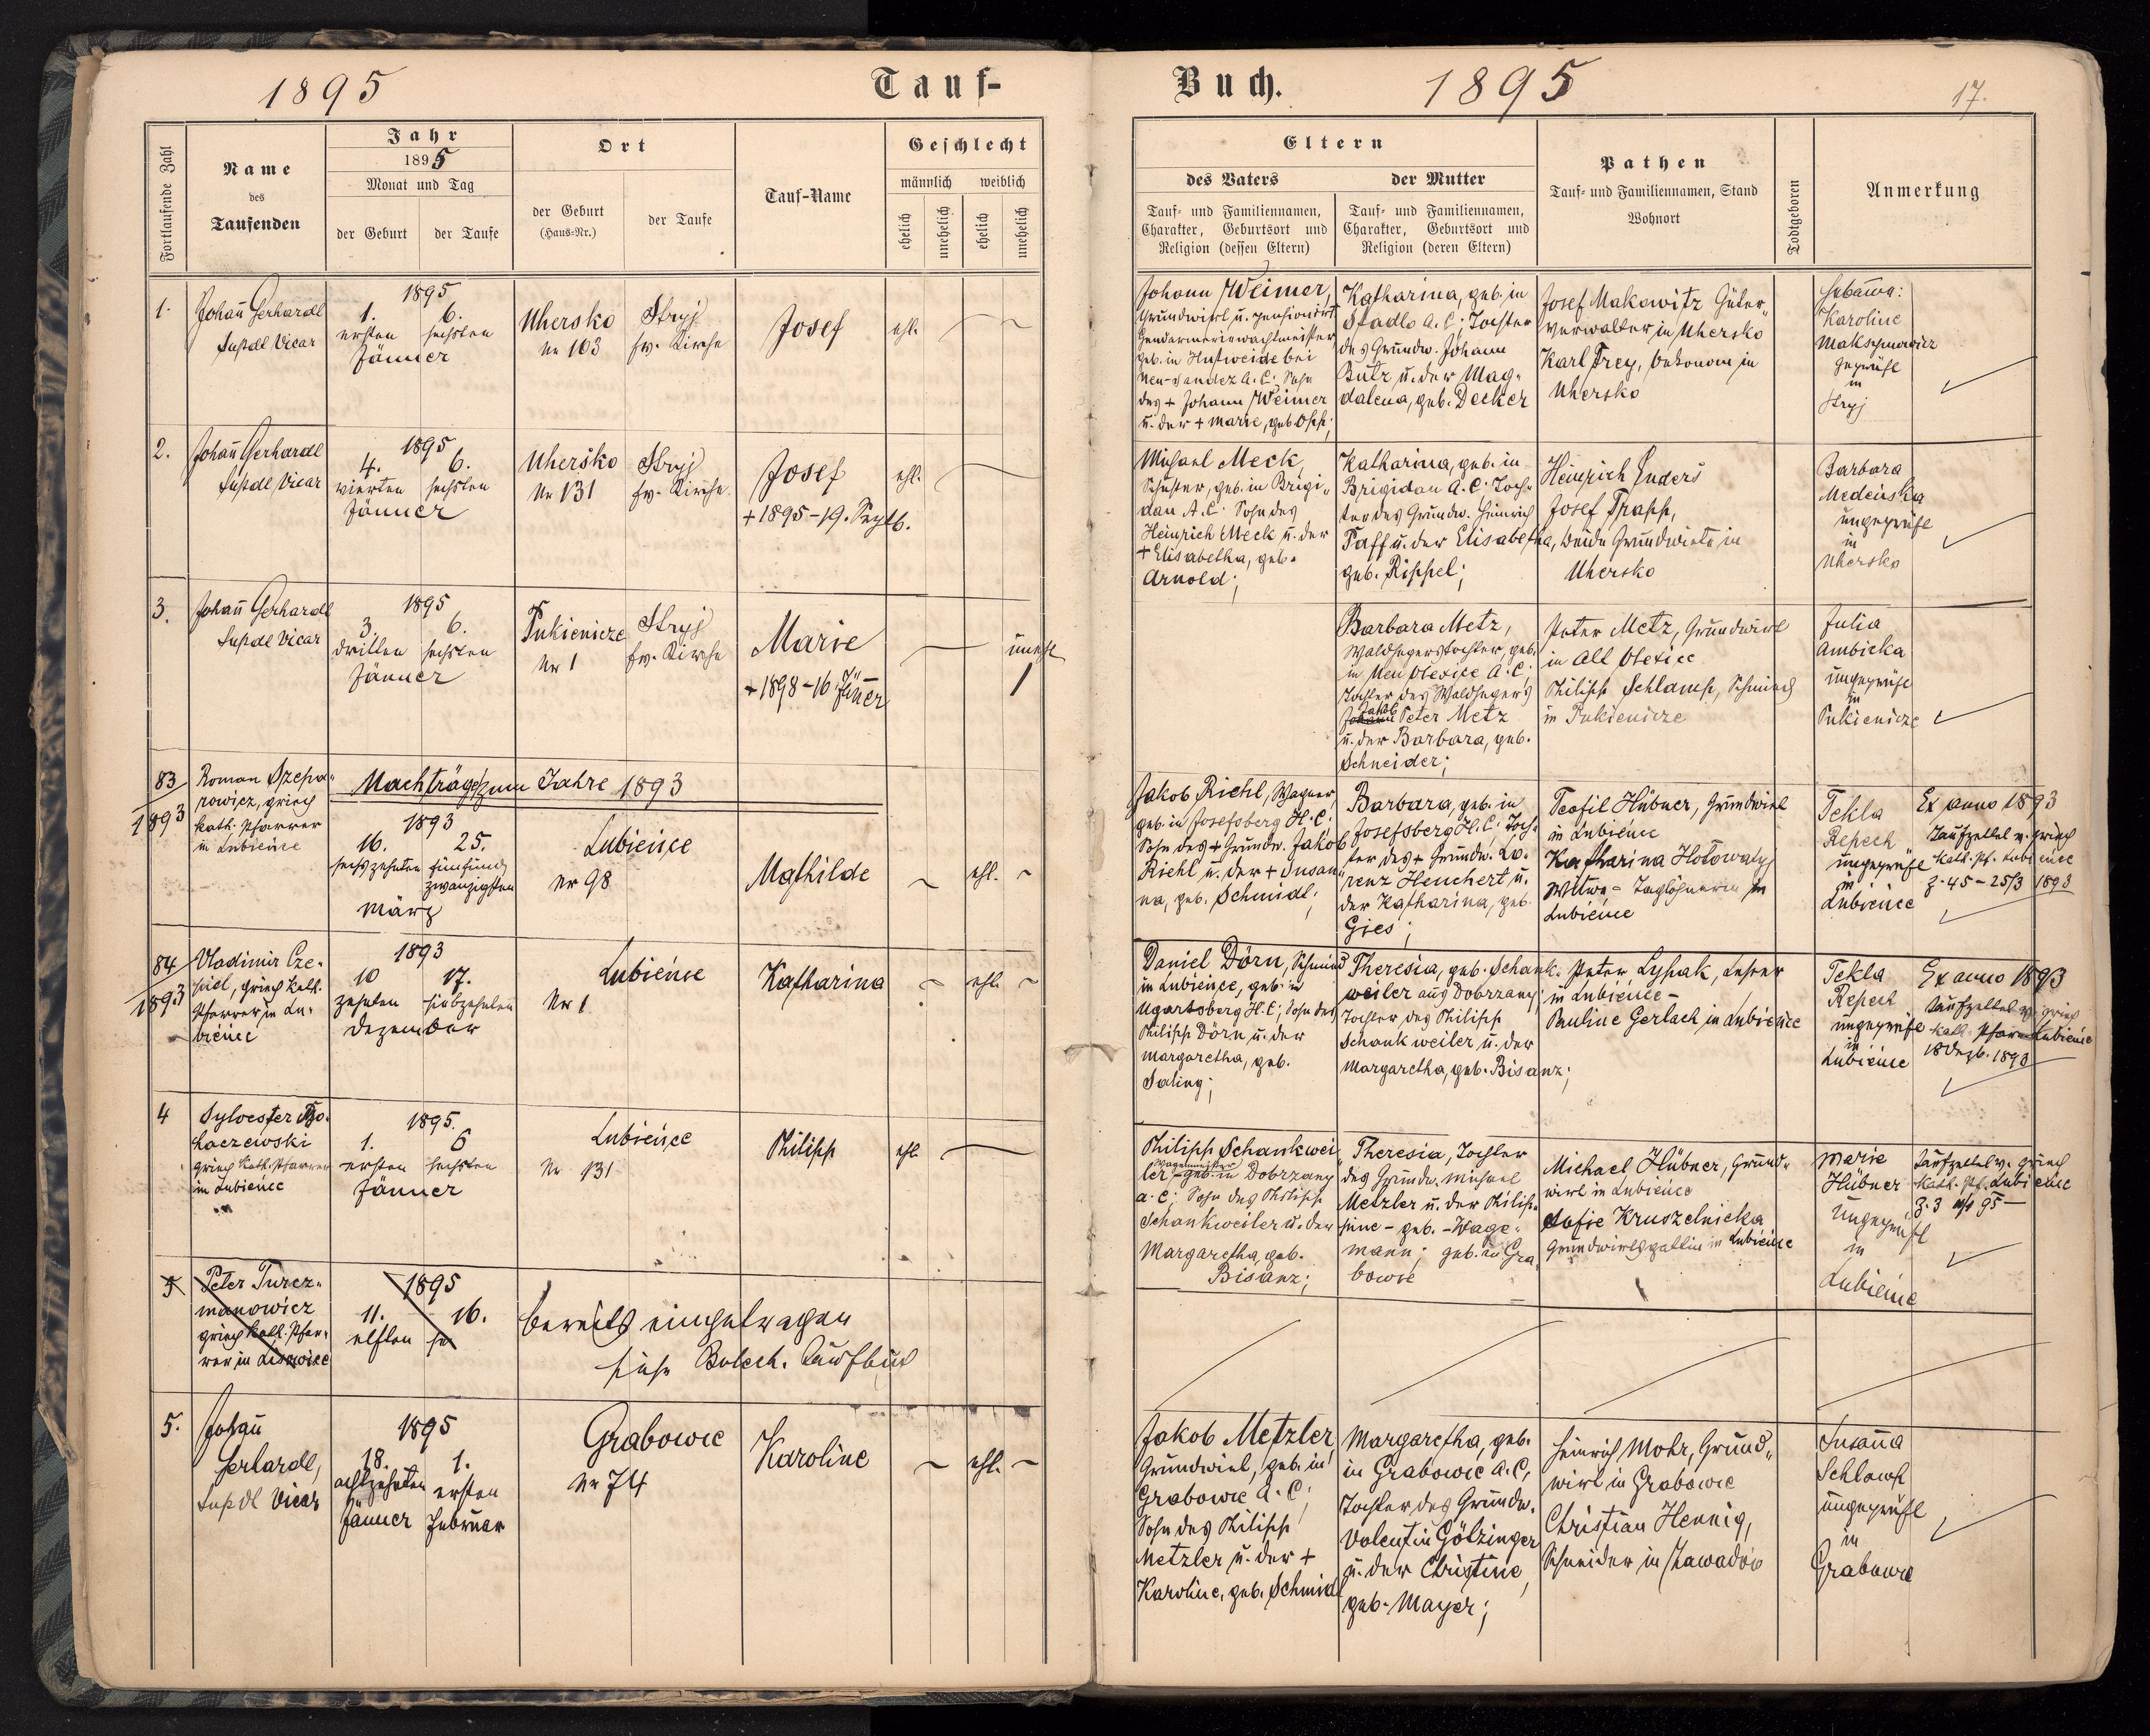 1895
Tauf-
Buch.
1895
17.
Fortlaufende Zahl
Name
des
Taufenden
Jahr
1895
Monat und Tag
der Geburt
der Taufe
Ort
der Geburt
(Haus-Nr.)
der Taufe
Tauf-Name
Geschlecht
männlich
weiblich
ehelich
unehelich
ehelich
unehelich
Eltern
des Vaters
Tauf- und Familiennamen,
Charakter, Geburtsort und
Religion (dessen Eltern)
der Mutter
Tauf- und Familiennamen,
Charakter, Geburtsort und
Religion (deren Eltern)
Pathen
Tauf- und Familiennamen, Stand
Wohnort
Todtgeboren
Anmerkung
1.
Johañ Gerhardt
Supdl Vicar
1895
1. 6.
ersten sechsten
Jänner
Uhersko
Nr 103
Stryj
ev. Kirche
Josef
ehl.
Johann Weimer,
Grundwirt u. pensionirt
Gendarmeriewachtmeister
geb. in Hutweide bei
Neu-Sandez A. C; Sohn
des + Johann Weimer
u. der + Marie, geb Opp;
Katharina, geb. in
Stadlo A. C; Tochter
des Grundw. Johann
Butz u. der Mag-
dalena, geb. Decker
Josef Makowitz Güter-
verwalter in Uhersko
Karl Frey, Oekonom in
Uhersko
Hebamme:
Karoline
Maksymowicz
geprüft
in
Stryj
2.
Johañ Gerhardt
Supdl Vicar
1895
4. 6.
vierten sechsten
Jänner
Uhersko
Nr 131
Stryj
ev. Kirche
Josef
+ 1895 - 19. Septb.
ehl.
Michael Meck,
Schuster, geb. in Brigi-
dau A. C. Sohn des
Heinrich Meck u. der
+ Elisabetha, geb.
Arnold;
Katharina, geb. in
Brigidau A. C. Toch-
ter des Grundw. Heinrich
Paff u. der Elisabetha,
geb. Rippel;
Heinrich Enders
Josef Trapp,
beide Grundwirte in
Uhersko
Barbara
Medeńska
ungeprüft
in
Uhersko
3.
Johañ Gerhardt
Supdl Vicar
1895
3. 6.
dritten sechsten
Jänner
Pukienicze
Nr 1
Stryj
ev. Kirche
Marie
+ 1898 - 16 Jäñer
unehl
1
Barbara Metz,
Waldhegerstochter, geb.
in Neu Olexice A. C;
Tochter des Waldhegers
Jakob
Johann Peter Metz
u. der Barbara, geb.
Schneider;
Peter Metz, Grundwirt
in Alt Olexice
Philipp Schlamp, Schmied
in Pukienicze
Julia
Ambicka
ungeprüft
in
Pukienicze
83
1893
Roman Szepa-
rowicz, griech
kath. Pfarrer
in Lubieńce
Nachträge zum Jahre 1893
1893
16. 25.
sechszehnten fünfund
zwanzigsten
März
Lubieńce
Nr 98
Mathilde
ehl.
Jakob Richl, Wagner,
geb. in Josefsberg H. C.
Sohn des + Grundw. Jakob
Riehl u. der + Susan-
na, geb. Schmidt;
Barbara, geb. in
Josefsberg H. C. Toch-
ter des + Grundw. Lo-
renz Heuchert u.
der Katharina, geb.
Gies;
Teofil Hübner, Grundwirt
in Lubieńce
Katharina Hołowaty
Witwe - Taglöhnerin in
Lubieńce
Tekla
Repech
ungeprüft
in
Lubieńce
Ex anno 1893
Taufzettel v. griech
kath. Pf. Lubieńce
Z. 45 - 25/3 1893
84
1893
Vladimir Cze-
piel, griech kath.
Pfarrer in Lu-
bieńce
1893
10 17.
zehnten siebzehnten
Dezember
Lubieńce
Nr 1
Katharina
ehl.
Daniel Dörn, Schmied
in Lubieńce, geb. in
Ugartsberg H. C; Sohn des
Philipp Dörn u. der
Margaretha, geb.
Saling;
Theresia, geb. Schank-
weiler aus Dobrzany;
Tochter des Philipp
Schankweiler u. der
Margaretha, geb. Bisanz;
Peter Łysak, Lehrer
in Lubieńce -
Pauline Gerlach in Lubieńce
Tekla
Repech
ungeprüft
in
Lubieńce
Ex anno 1893
Taufzettel v. griech
kath. Pfarre Lubieńce
18 Dezb. 1893
4
Sylvester Bo-
haczewski
griech kath. Pfarrer
in Lubieńce
1895.
1. 6
ersten sechsten
Jänner
Lubieńce
Nr 131
Philipp
ehl.
Philipp Schankwei-
ler Wagnermeister geb. in Dobrzany
A. C; Sohn des Philipp
Schankweiler u. der
Margaretha, geb.
Bisanz;
Theresia, Tochter
des Grundw. Michael
Metzler u. der Philip-
pine - geb. - Wage-
mann; geb. in Gra-
bowce
Michael Hübner, Grund-
wirt in Lubieńce
Sofie Kruszelnicka
Grundwirtsgattin in Lubieńce
Marie
Hübner
ungeprüft
in
Lubieńce
Taufzettel v. griech
kath. Pf. Lubieńce
Z. 3 95 -
5
Peter Turcz-
manowicz
griech kath. Pfar-
rer in Lisowice
1895
11. 16.
elften se
bereits eingetragen
siehe Bolech. Taufbuch
5.
Johañ
Gerhardt,
Supdl Vicar
1895
18. 1.
achtzehnten ersten
Jänner Februar
Grabowce
Nr 74
Karoline
ehl.
Jakob Metzler
Grundwirt, geb. in
Grabowce A. C;
Sohn des Philipp
Metzler u. der +
Karoline, geb. Schmidt
Margaretha, geb.
in Grabowce A. C,
Tochter des Grundw.
Valentin Götzinger
u. der Christine,
geb. Mayer;
Heinrich Mohr, Grund-
wirt in Grabowce
Christian Hennig,
Schneider in Zawadów
Susañа
Schlamp
ungeprüft
in
Grabowce